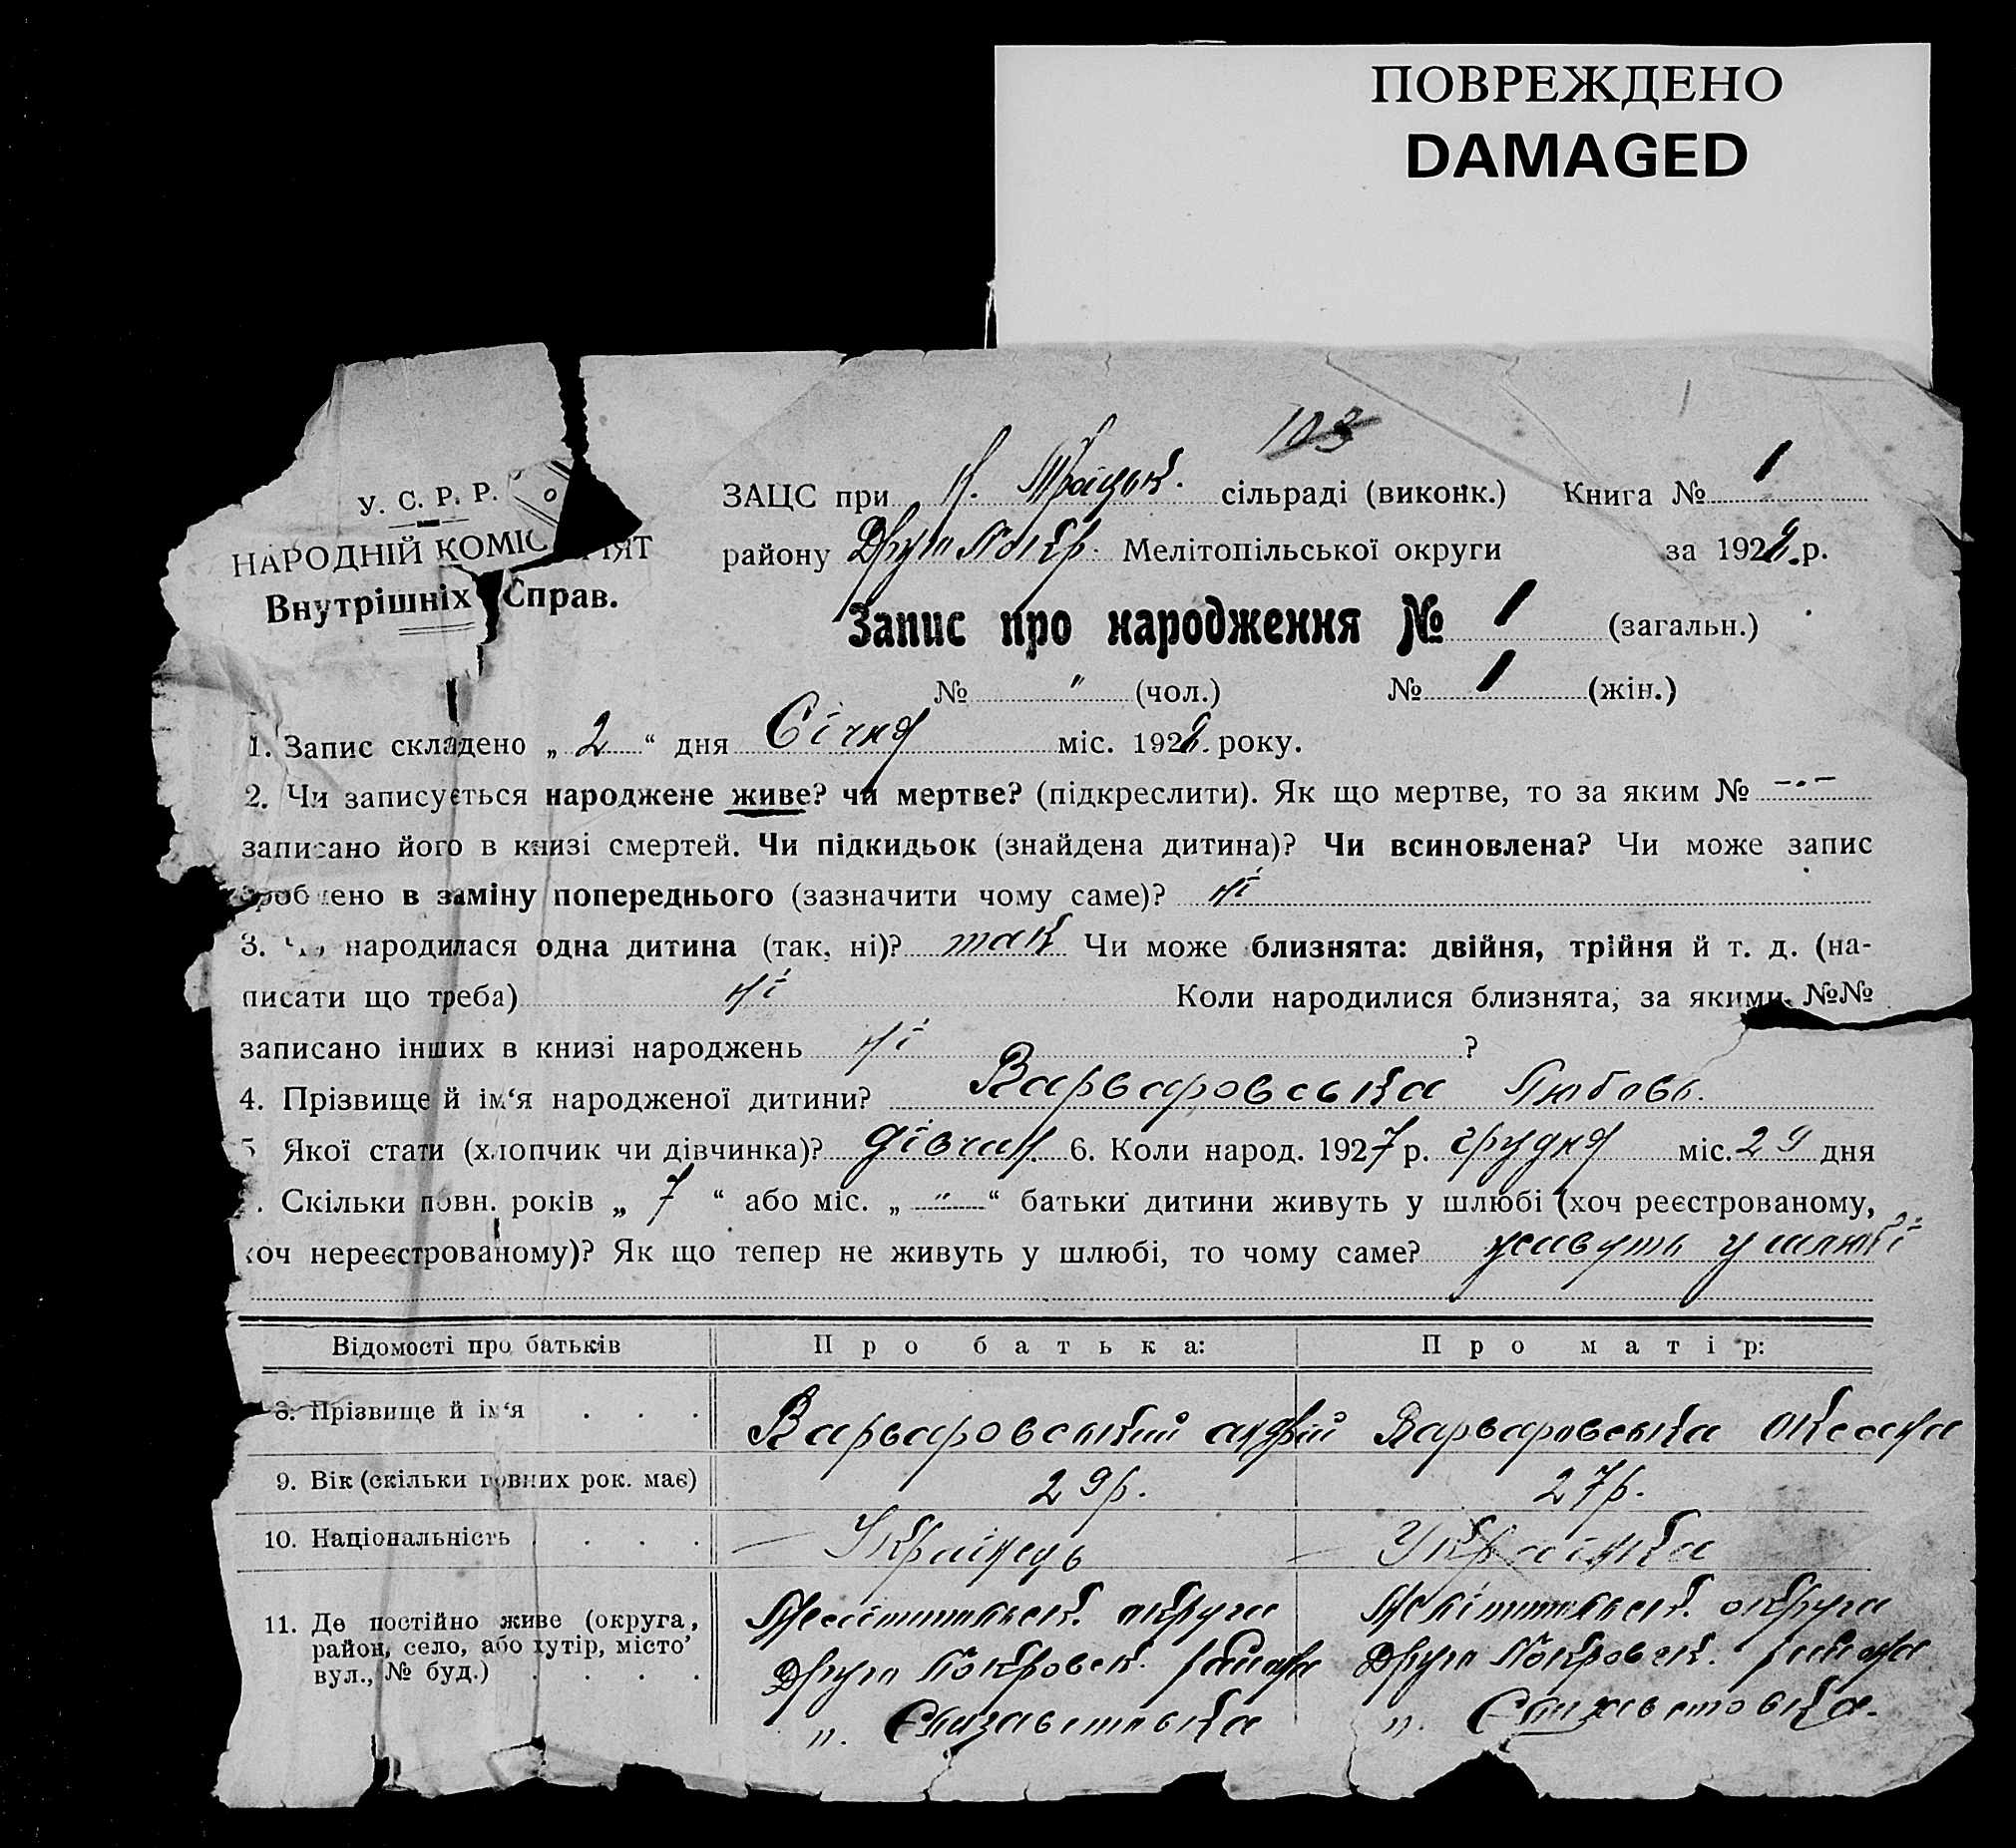 ПОВРЕЖДЕНО
DAMAGED
103
У. С. Р. Р.
НАРОДНІЙ КОМІС ІЯТ
Внутрішніх Справ.
ЗАЦС при Н. Троіцьк. сільраді (виконк.) Книга № 1
району Друго Покр. Мелітопільської округи за 1928.р.
Запис про народження № 1 (загальн.)
№ " (чол.) № 1 (жін.)
1. Запис складено „ 2 “ дня Січня міс. 1928. року.
2. Чи записується народжене живе? чи мертве? (підкреслити). Як що мертве, то за яким № -.-
записано його в книзі смертей. Чи підкидьок (знайдена дитина)? Чи всиновлена? Чи може запис
зроблено в заміну попереднього (зазначити чому саме)? ні
3. Чи народилася одна дитина (так, ні)? так Чи може близнята: двійня, трійня й т. д. (на-
писати що треба) ні Коли народилися близнята, за якими №№
записано інших в книзі народжень ні ?
4. Прізвище й ім‘я народженої дитини? Варваровська Любовь.
5 Якої стати (хлопчик чи дівчинка)? дівчин. 6. Коли народ. 1927 р. грудня міс. 29 дня
. Скільки повн. років „ 7 “ або міс. „ " “ батьки дитини живуть у шлюбі (хоч реєстрованому,
хоч нереєстрованому)? Як що тепер не живуть у шлюбі, то чому саме? живуть у шлюбі
Відомості про батьків Про батька: Про матір:
8. Прізвище й ім‘я . . . Варваровський андрій Варваровська оксана
9. Вік (скільки повних рок. має) 29р. 27р.
10. Національність . . . . Українець Українка
11. Де постійно живе (округа, Мелітопільск. округи Мелітопільск. округи
район, село, або хутір, місто’ Друго Покровск. района Друго Покровск. района
вул., № буд.) . . . . п. Єлизаветовка п. Єлизаветовка.